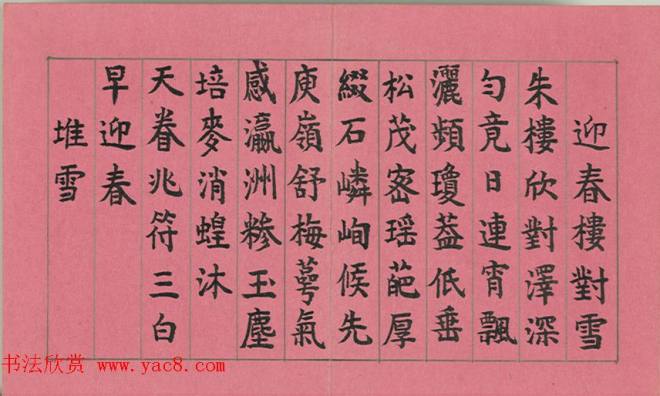 迎春樓對雪
朱樓欣對澤深
勻竟日連宵飄
灑頻瓊蓋低垂
松茂密瑶葩厚
綴石嶙峋候先
庾嶺舒梅萼氣
感瀛洲糝玉塵
培麥消蝗沐
天眷兆符三白
早迎春
堆雪
书法欣赏 www.yac8.com